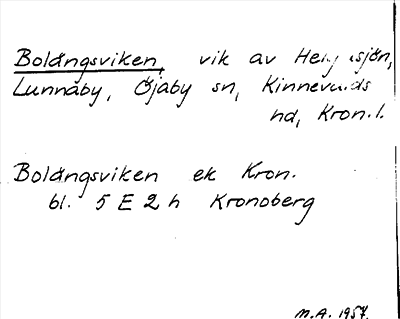 Bolängsviken, vik av sjön,
Lunnaby, Öjaby sn, Kinnevalds
hd, Kron. l.
Bolängsviken ek Kron.
bl. 5 E 2 h Kronoberg
M.A. 1957.